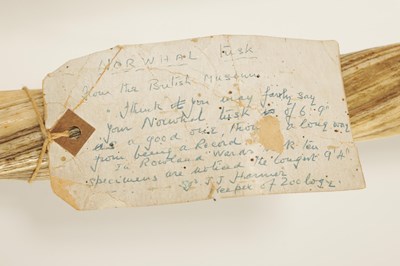 NORWHAL Tusk
from the British Museum
I think that you may fairly say
your Norwhal tusk of 6'.9"
is a good one, though a long way
from being a Record
In Rowland Wards book ten
specimens are noted the longest 9'4"
Sg. J J Harmer
Keeper of Zoology